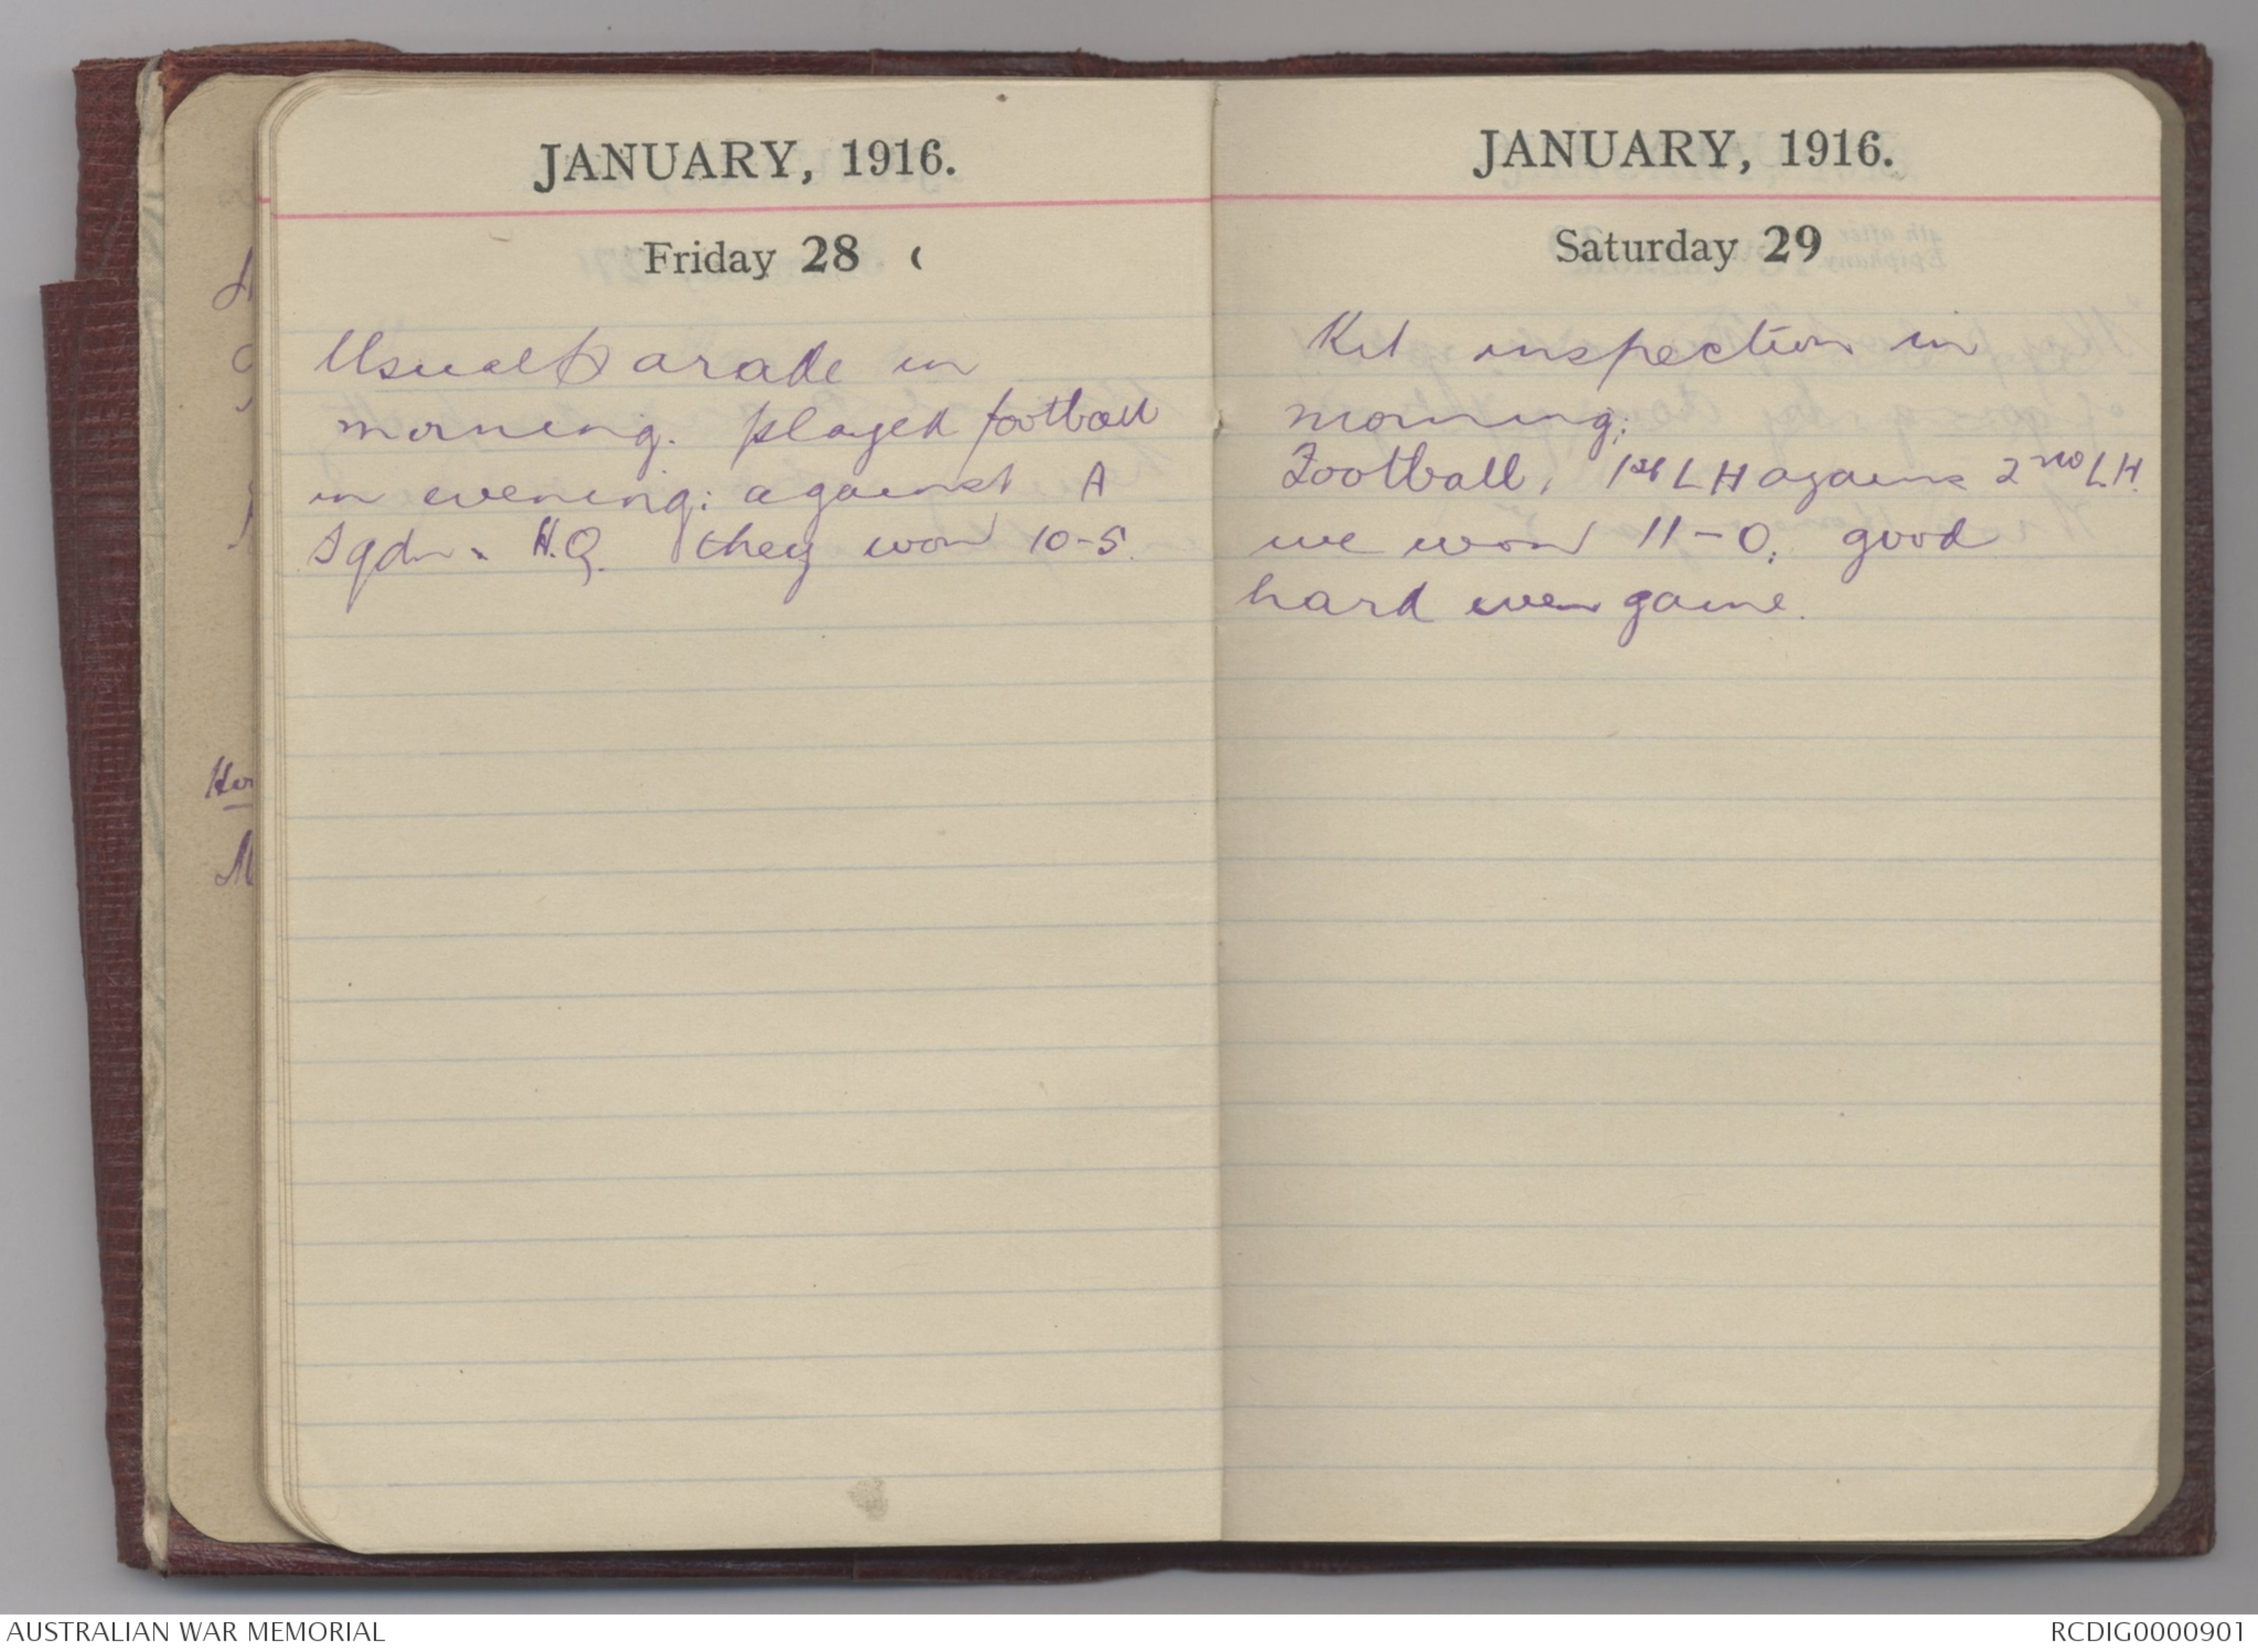 JANUARY, 1916.
Friday 28
Usual Parade in
morning. played football
in evening: against A
Sqdn. H.Q. they won 10-5.
JANUARY, 1916.
Saturday 29
Kit inspection in
morning:
Football, 1st LH agains 2nd LH.
we won 11-0; good
hard even game.
AUSTRALIAN WAR MEMORIAL
RCDIG0000901